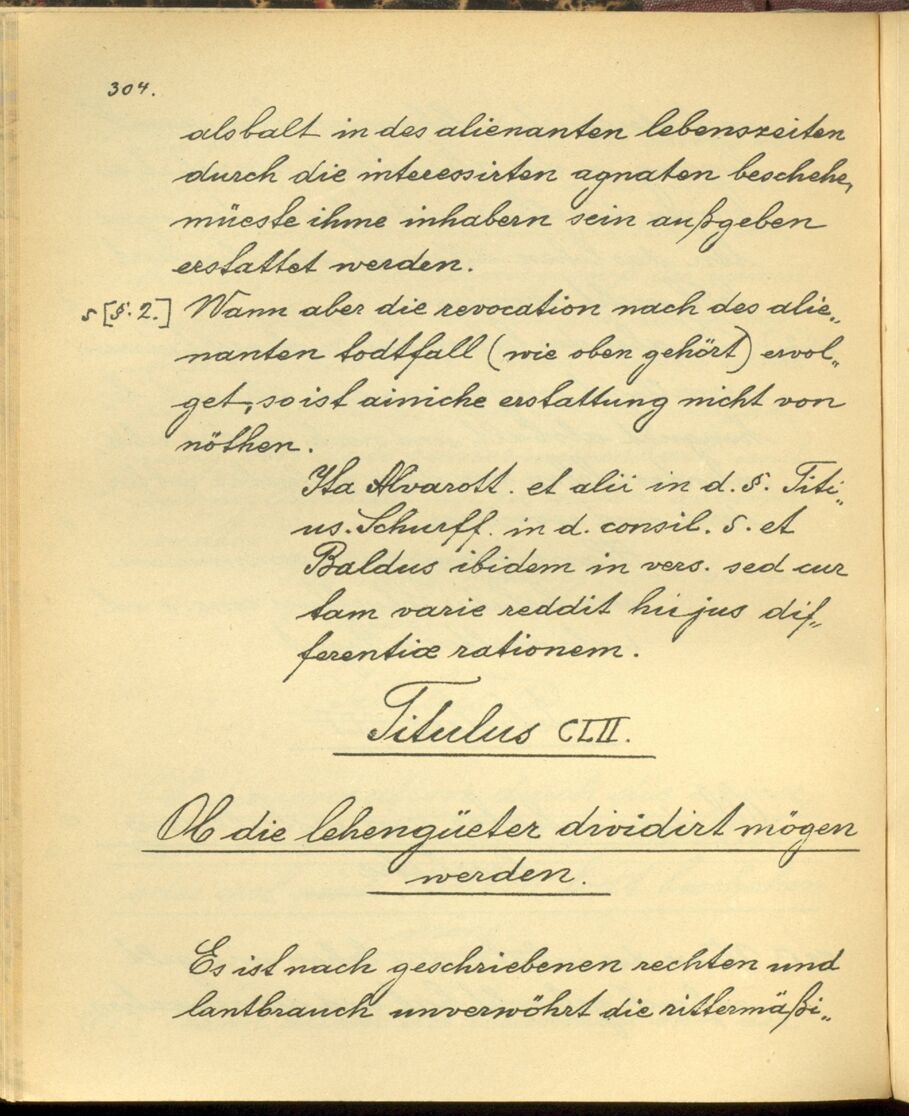 304.
alsbalt in des alienanten lebenszeiten
durch die interessirten agnaten beschehe,
müeste ihme inhabern sein außgeben
erstattet werden.
s [§. 2.] Wann aber die revocation nach des alie„
nanten todtfall (wie oben gehört) ervol„
get, so ist ainiche erstattung nicht von
nöthen.
Ita Alvarott. et alii in d. §. Titi„
us. Schurff. in d. consil. 5. et
Baldus ibidem in vers. sed cur
tam varie reddit hujus dif„
ferentiæ rationem.
Titulus CLII.
Ob die lehengüeter dividirt mögen
werden.
Es ist nach geschriebenen rechten und
lantbrauch unverwöhrt die rittermäßi„